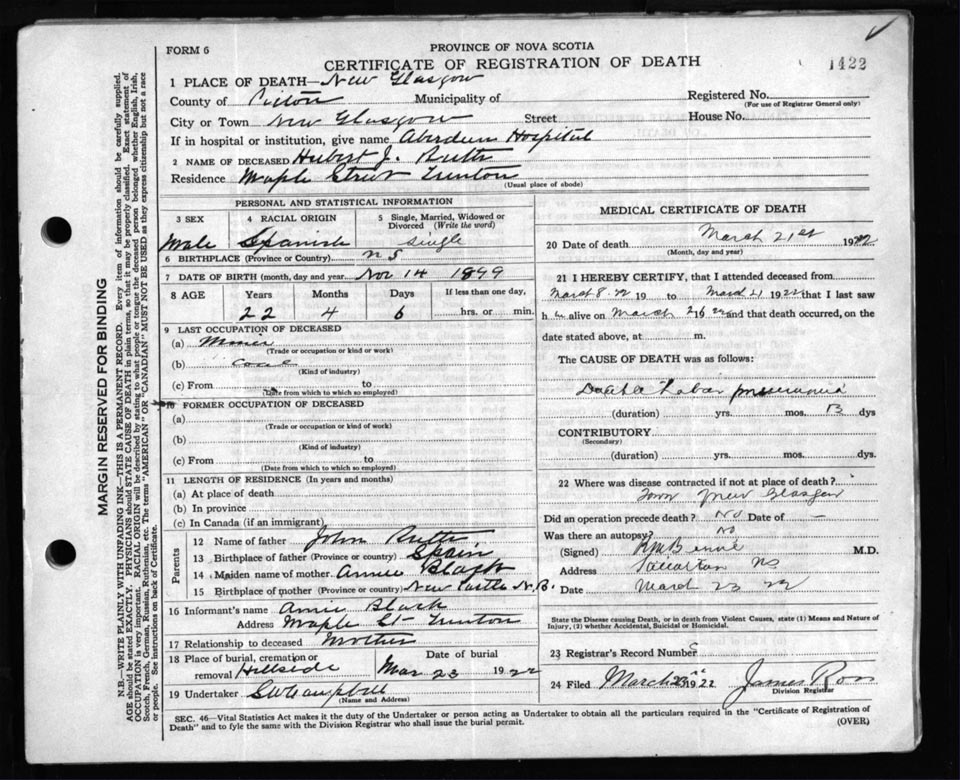 FORM 6
PROVINCE OF NOVA SCOTIA
CERTIFICATE OF REGISTRATION OF DEATH
1422
1 PLACE OF DEATH—New Glasgow
County of Pictou Municipality of
Registered No.
(For use of Registrar General only)
City or Town New Glasgow Street House No.
If in hospital or institution, give name Aberdeen Hospital
2 NAME OF DECEASED Hubert J.
Residence Maple Street Trenton
(Usual place of abode)
PERSONAL AND STATISTICAL INFORMATION
3 SEX
Male
4 RACIAL ORIGIN
Spanish
5 Single, Married, Widowed or
Divorced (Write the word)
Single
6 BIRTHPLACE (Province or Country) N S
7 DATE OF BIRTH (month, day and year) Nov 14 1899
8 AGE Years Months Days If less than one day,
22 4 6 hrs. or min.
9 LAST OCCUPATION OF DECEASED
(a) Miner
(Trade or occupation or kind or work)
(b) Coal
(Kind of industry)
(c) From to
(Date from which to which so employed)
10 FORMER OCCUPATION OF DECEASED
(a)
(Trade or occupation or kind of work)
(b)
(Kind of industry)
(c) From to
(Date from which to which so employed)
11 LENGTH OF RESIDENCE (In years and months)
(a) At place of death
(b) In province
(c) In Canada (if an immigrant)
Parents
12 Name of father John
13 Birthplace of father (Province or country) Spain
14 Maiden name of mother Annie Black
15 Birthplace of mother (Province or country) New Castle N.B.
16 Informant's name Annie Black
Address Maple St Trenton
17 Relationship to deceased Mother
18 Place of burial, cremation or
removal Hillside
Date of burial
Mar 23 1922
19 Undertaker Campbell
(Name and Address)
MEDICAL CERTIFICATE OF DEATH
20 Date of death March 21st 1922
(Month, day and year)
21 I HEREBY CERTIFY, that I attended deceased from
March 8 22 19 to March 21 1922 that I last saw
h alive on March 22 and that death occurred, on the
date stated above, at m.
The CAUSE OF DEATH was as follows:
Double Lobar pneumonia
(duration) yrs. mos. 13 dys
CONTRIBUTORY
(Secondary)
(duration) yrs. mos. dys.
22 Where was disease contracted if not at place of death?
Town New Glasgow
Did an operation precede death? No Date of —
Was there an autopsy? No
(Signed) M.D.
Address N S
Date March 23 22
State the Disease causing Death, or in death from Violent Causes, state (1) Means and Nature of
Injury, (2) whether Accidental, Suicidal or Homicidal.
23 Registrar's Record Number
24 Filed March 1922 James Ross
Division Registrar
SEC. 46—Vital Statistics Act makes it the duty of the Undertaker or person acting as Undertaker to obtain all the particulars required in the "Certificate of Registration of
Death" and to fyle the same with the Division Registrar who shall issue the burial permit.
(OVER)
MARGIN RESERVED FOR BINDING
N.B.—WRITE PLAINLY WITH UNFADING INK—THIS IS A PERMANENT RECORD. Every item of information should be carefully supplied.
AGE should be stated EXACTLY. PHYSICIANS should STATE CAUSE OF DEATH in plain terms, so that it may be properly classified. Exact statement of
OCCUPATION is very important. RACIAL ORIGIN will be described by stating to what people or tongue the deceased person belonged whether English, Irish,
Scotch, French, German, Russian, Ruthenian, etc. The terms "AMERICAN" or "CANADIAN" MUST NOT BE USED as they express citizenship but not a race
or people. See instructions on back of Certificate.